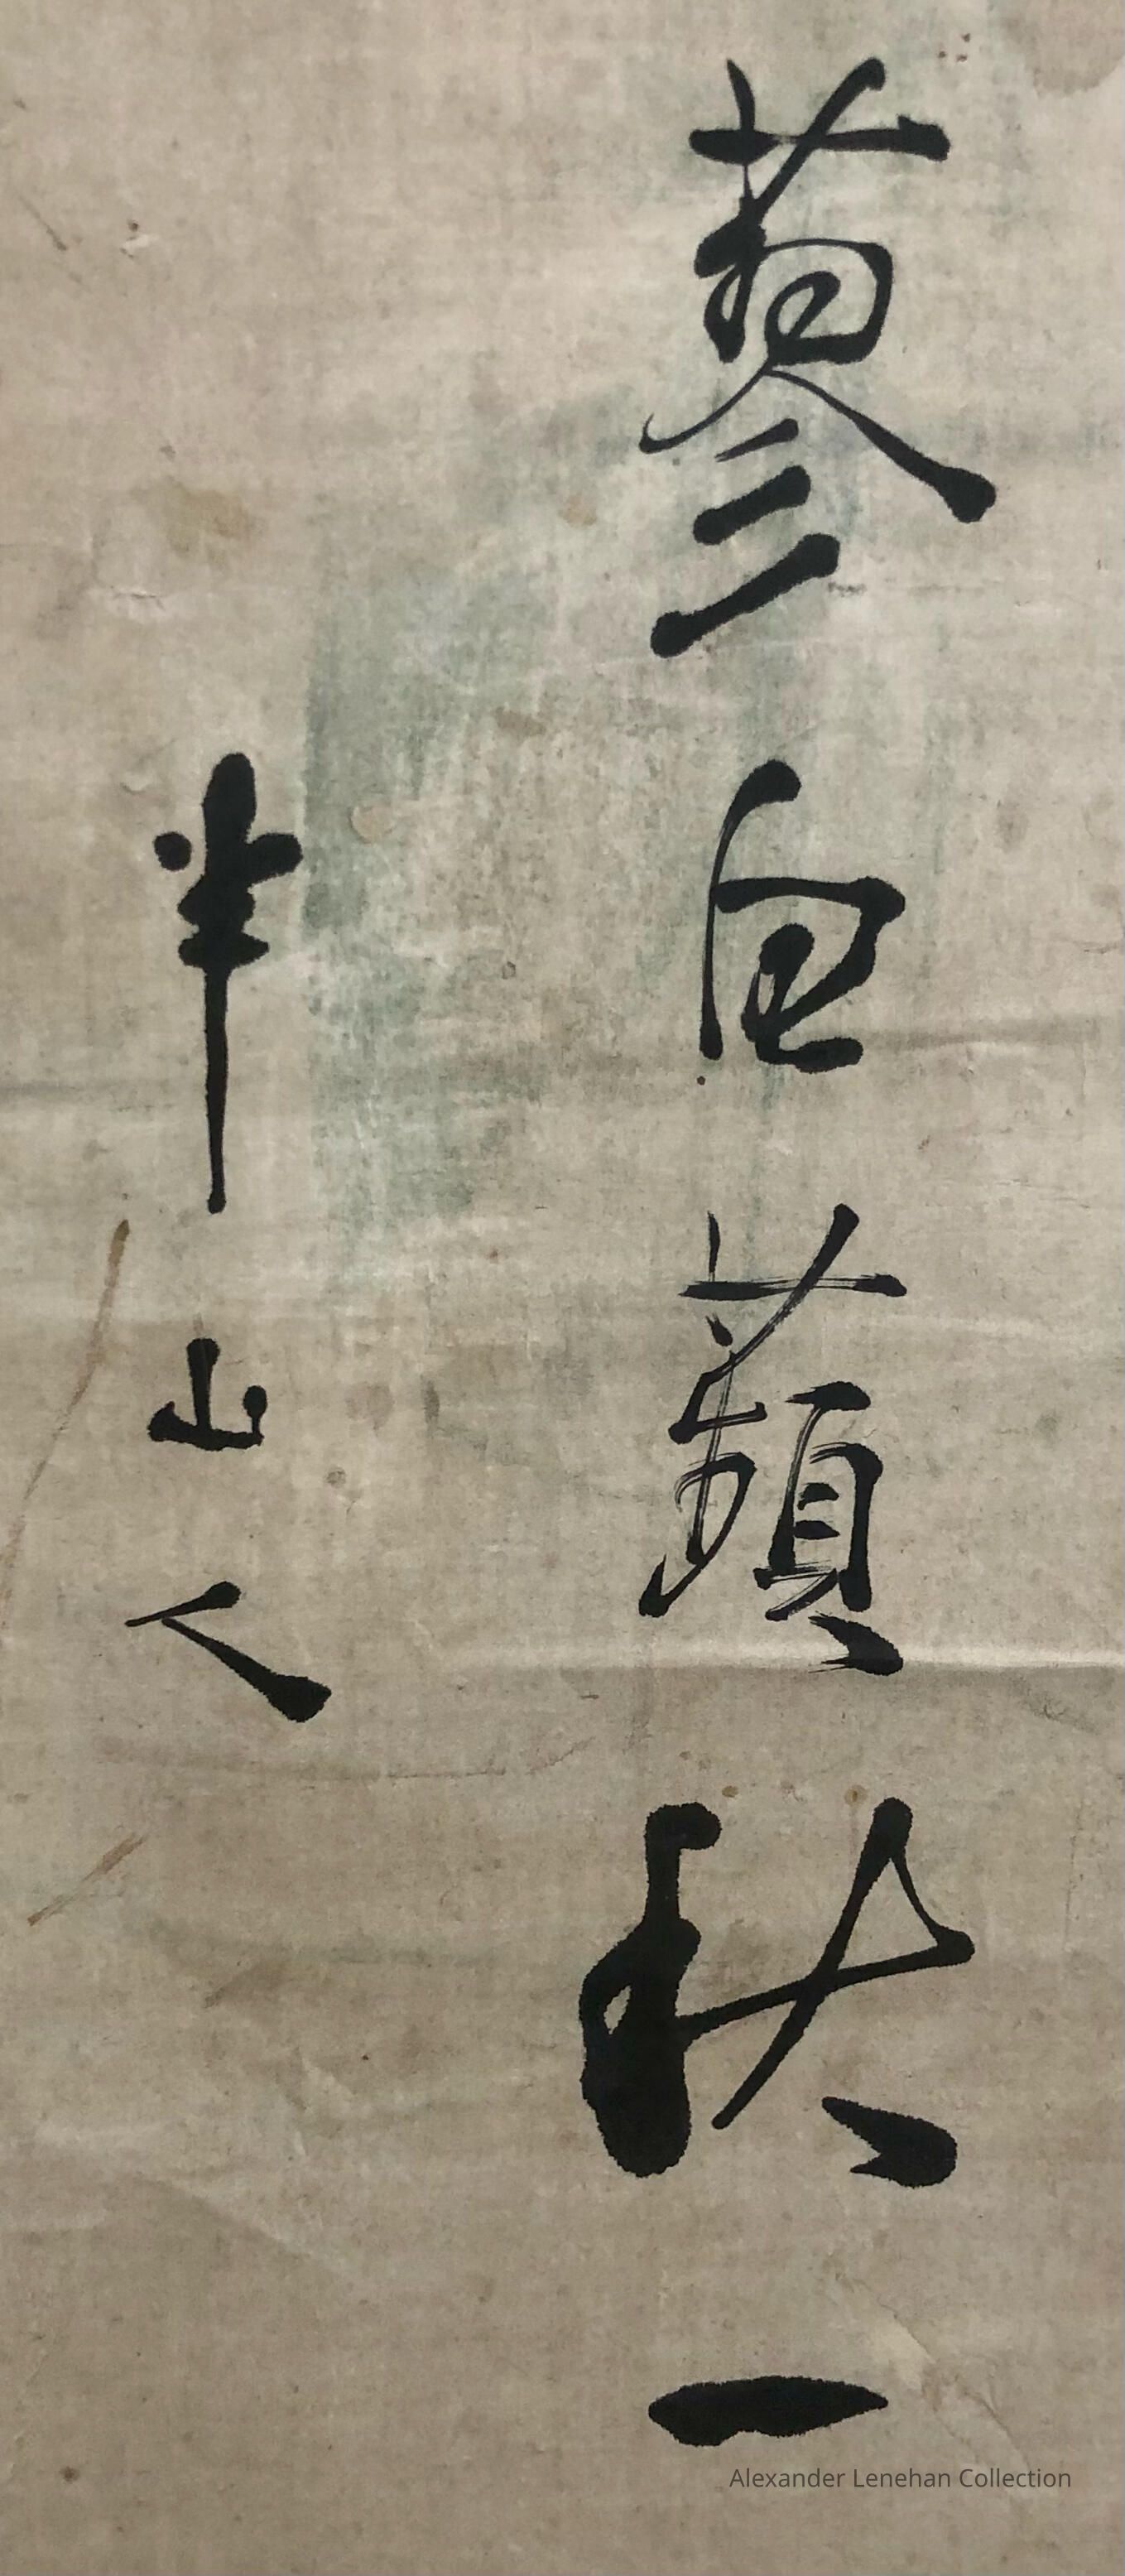 蓼白蘋秋一
半山人
Alexander Lenehan Collection